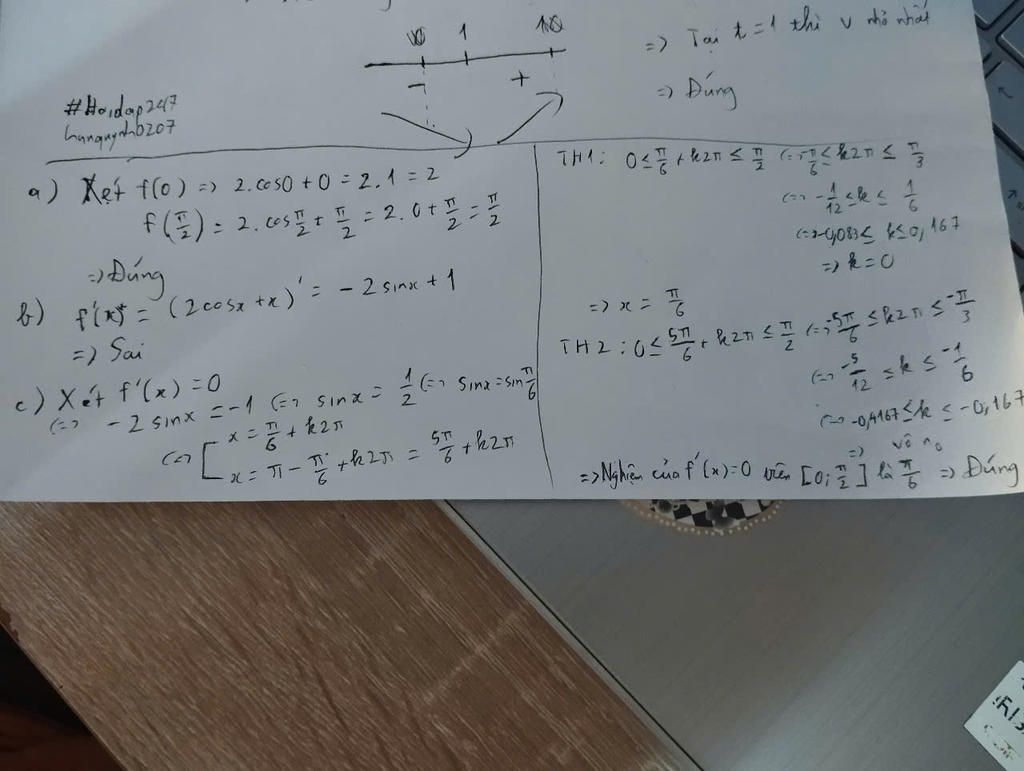 1
=> Tại t = 1 thì v nhỏ nhất
- +
=> Đúng
#Hoidap247
a) Xét f(0) => 2.cos0 + 0 = 2.1 = 2
f(π/2) = 2.cos π/2 + π/2 = 2.0 + π/2 = π/2
=> Đúng
b) f'(x) = (2cosx + x)' = -2sinx + 1
=> Sai
c) Xét f'(x) = 0
<=> -2sinx = -1 <=> sinx = 1/2 <=> sinx = sin π/6
<=> [ x = π/6 + k2π
x = π - π/6 + k2π = 5π/6 + k2π
TH1: 0 ≤ π/6 + k2π ≤ π/2 <=> -π/6 ≤ k2π ≤ π/3
<=> -1/12 ≤ k ≤ 1/6
<=> -0,083 ≤ k ≤ 0,167
=> k = 0
=> x = π/6
TH2: 0 ≤ 5π/6 + k2π ≤ π/2 <=> -5π/6 ≤ k2π ≤ -π/3
<=> -5/12 ≤ k ≤ -1/6
<=> -0,4167 ≤ k ≤ -0,167
=> vô no
=> Nghiệm của f'(x)=0 trên [0; π/2] là π/6 => Đúng